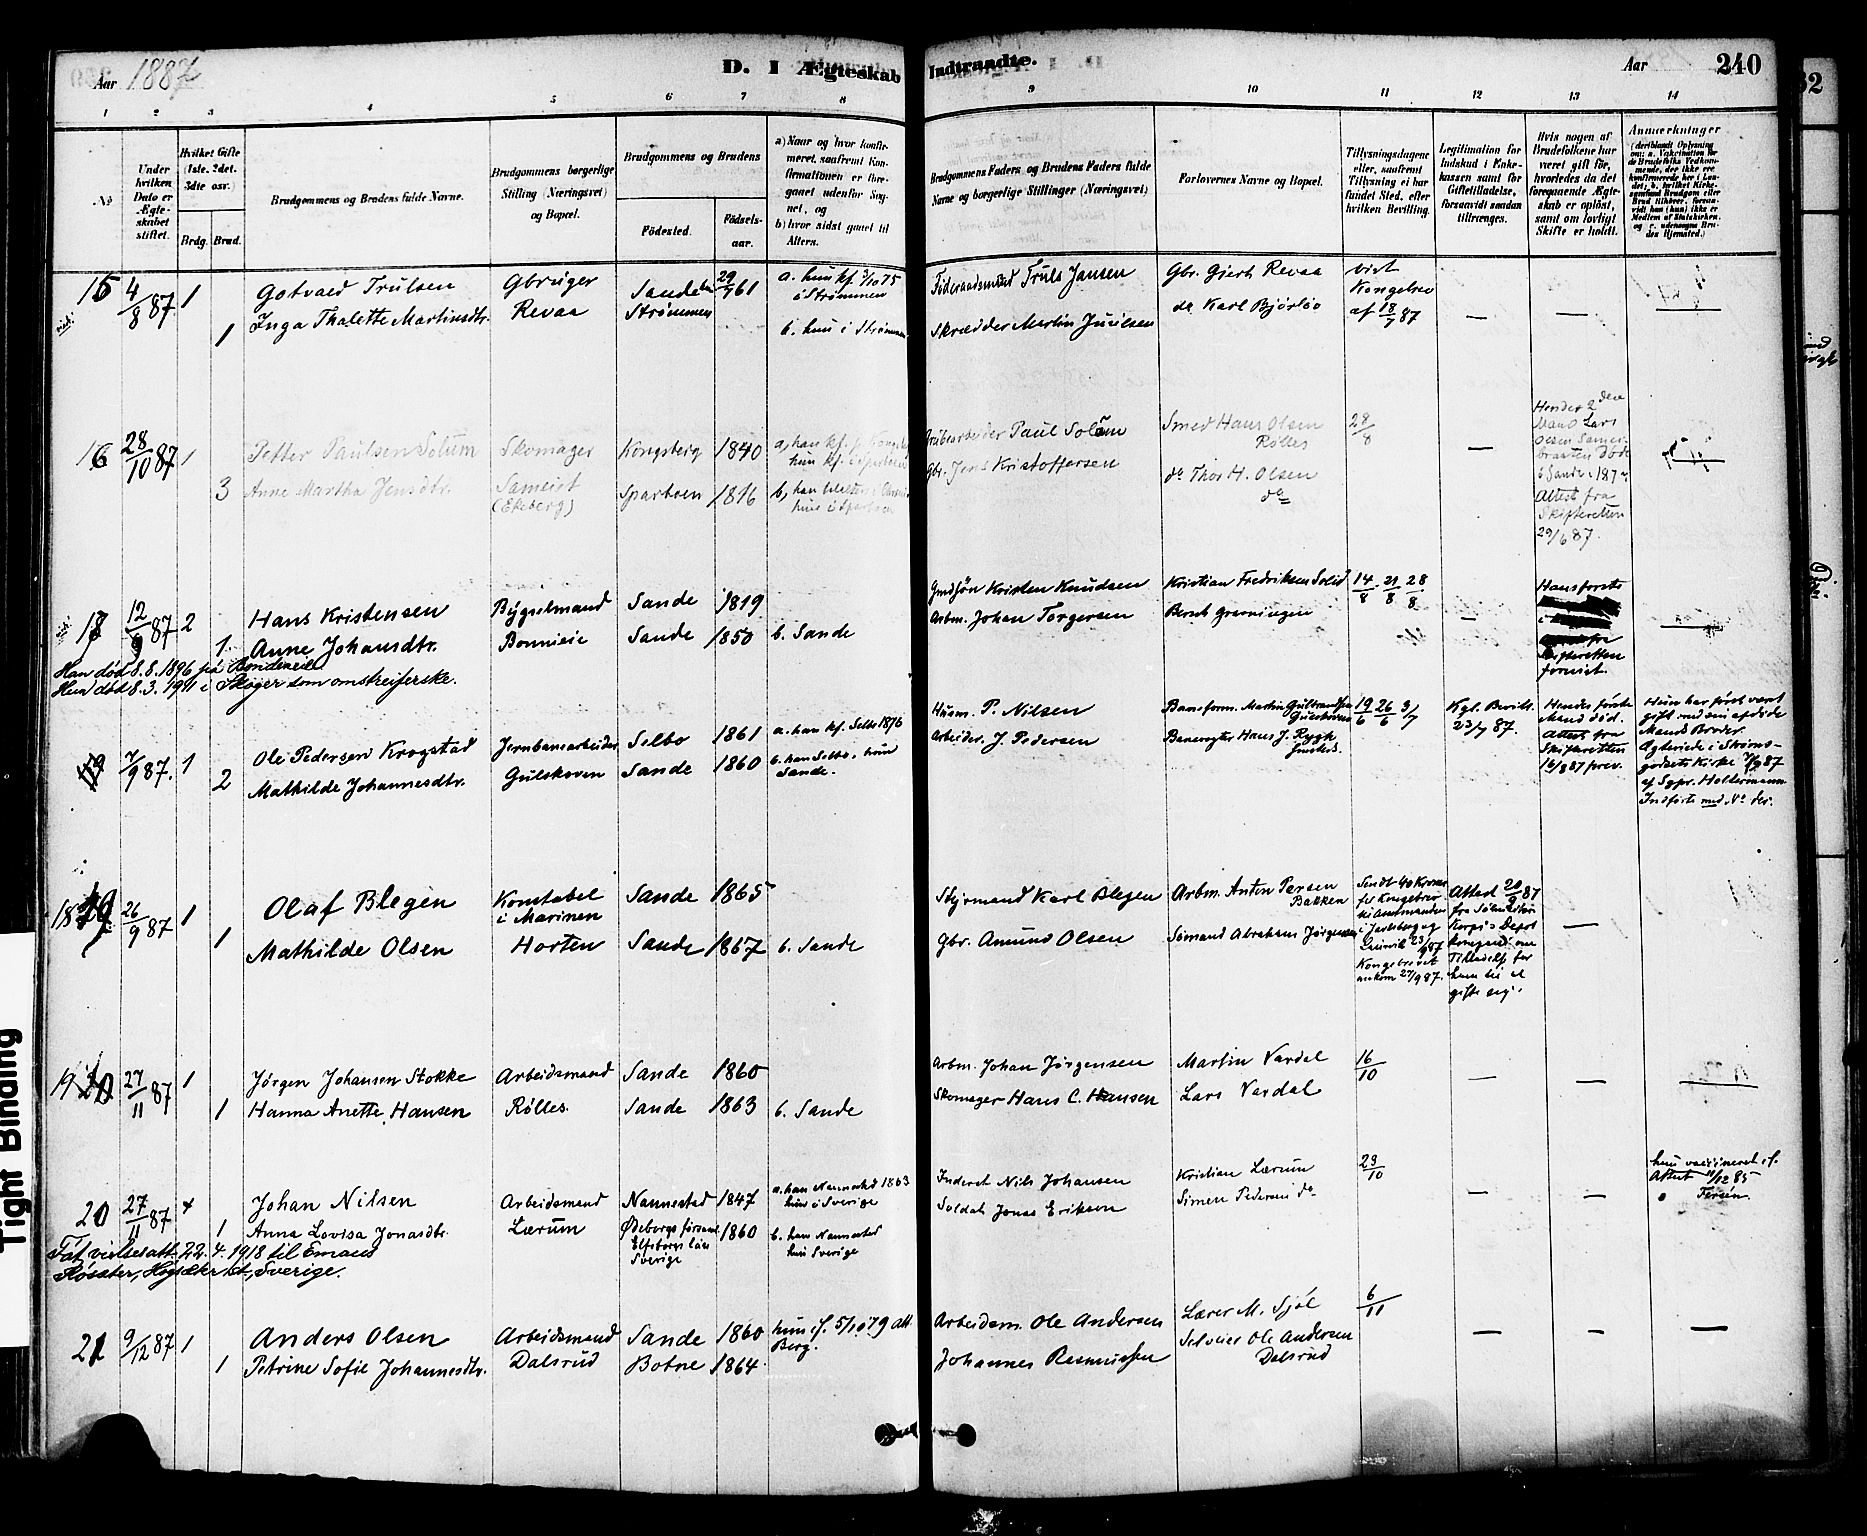 Aar 1887
D. I Ægteskab Indtraadte.
Aar
240
1 2 3 4 5 6 7 8 9 10 11 12 13 14
No
Under hvilken Dato er Ægteskabet stiftet.
Hvilket Gifte (1ste. 2det. 3die osv.)
Brdg. Brud.
Brudgommens og Brudens fulde Navne.
Brudgommens borgerlige Stilling (Næringsvei) og Bopæl.
Brudgommens og Brudens
Fødested.
Fødselsaar.
a) Naar og hvor konfirmeret, saafremt Konfirmationen er foregaaet udenfor Sognet, og
b) hvor sidst gaaet til Alters.
Brudgommens Faders og Brudens Faders fulde Navne og borgerlige Stillinger (Næringsvei)
Forlovernes Navne og Bopæl.
Tillysningsdagene eller, saafremt Tillysning ei har fundet Sted, efter hvilken Bevilling.
Legitimation for Indskud i Enkekassen samt for Giftetilladelse, forsaavidt saadan tiltrænges.
Hvis nogen af Brudefolkene har været gift før, hvorledes da det foregaaende Ægteskab er opløst, samt om lovligt Skifte er holdt.
Anmærkninger
15 4/8 87 1 Gotvaed Trulsen Gbruger Sande 29/7 61 a. hun kf. 3/10 75
i Strømmen
1 Inga Thalette Martinsdtr. Revaa Strømmen
b. hun i Strømmen
Føderaadsmand Truls Jansen Gbr. Gjert Revaa viet
Kongebrev
Skrædder Martin Juulsen do Karl Bjørlso af 18/7 87 — — —
16 28/10 87 1 Petter Paulsen Solum Skomager Kongsberg 1840
3 Anne Martha Jensdtr. Sameiet Sparboen 1816
(Ekeberg)
Grubearbeider Paul Solem Smed Hans Olsen 28/8
Rølles
Gbr. Jens Kristoffersen do Thor H. Olsen
do
Hendes 2den
Mand Lars
Olsen
Døde
Attest fra
Skifteretten
29/6 87.
17 12/9 87 2 Hans Kristensen Bygselmand Sande 1819
1 Anne Johansdtr. Bonnieie Sande 1850 b. Sande
Han død 8.8.1896 på Bondeneie
Hun død 8.3.1911 i Skoger som omstreiferske.
Gmdsøn Kristen Knudsen Kristian Fredriksen Solid 14/8 - 21/8 28/8
Arbm. Johan Torgersen Bernt Grønningen — —
Hans første
Skifteretten
forevist.
7/9 87. 1 Ole Pedersen Krogstad Jernbanearbeider Selbo 1861 a. han kf. Selbo 1876
2 Mathilde Johannesdtr. Gulskoven Sande 1860 b. han Selbo, hun
Sande.
Husm. P. Nilsen Baneform. Martin Gulbrandsen 19/6 26/6 3/7 Kgl. Bevill.
Gulskoven 23/7 87.
Arbeider. J. Pedersen Banevogter Hans J. Rygh
Hendes første
Mand død.
Attest fra
Skifteretten
16/8 87 prev.
Hun har først vært
gift med en afdøde
Mands Broder.
Ægteviede i Strøms-
godsets Kirke 7/9 87
af Sgpr. Holtermann
Indførte med No der.
18 26/9 87 1 Olaf Blegen Konstabel Sande 1865
i Marinen
1 Mathilde Olsen Horten Sande 1867 b. Sande
Styrmand Karl Blegen Arbm. Anton Persen
Bakken
Gbr. Amund Olsen Sømand Abraham Jørgensen
Sendt 40 Kroner
for Kongebrev
til Amtmanden
i Jarlsberg og
Laurvik 23/9 87
Kongebrevet
ankom 27/9 87.
Attest 20/9 87
fra Sømilitær
Korps's Depot
kompagni om
Tilladelse for
ham til at
gifte sig.
—
19 27/11 87 1 Jørgen Johansen Stokke Arbeidsmand Sande 1860
1 Hanna Anette Hansen Rølles. Sande 1863 b. Sande
Arbm. Johan Jørgensen Martin Vardal 16/10
Skomager Hans C. Hansen Lars Vardal — — —
20 27/11 87 4 Johan Nilsen Arbeidsmand Nannestad 1847 a. han Nannestad 1863
hun i Sverige
1 Anna Lovisa Jonasdtr. Lærum Ødeborgs församl. 1860 b. han Nannestad
Elfsborgs län hun Sverige
Sverige
Fåt vielsesatt. 22.4.1918 til Emaus
Røsäter, Sverige.
Inderst Nils Johansen Kristian Lærum 23/10
Soldat Jonas Eriksen Simen Pedersen do — —
hun vaccineret if.
Attest 11/12 85
Fersén.
21 9/12 87 1 Anders Olsen Arbeidsmand Sande 1860 hun if. 5/10 79 att.
Berg.
1 Petrine Sofie Johannesdtr. Dalsrud Botne 1864.
Arbeidsm. Ole Andersen Lærer M. Sjøl 6/11
Johannes Rasmussen Selveier Ole Andersen
Dalsrud — — —
Tight Binding